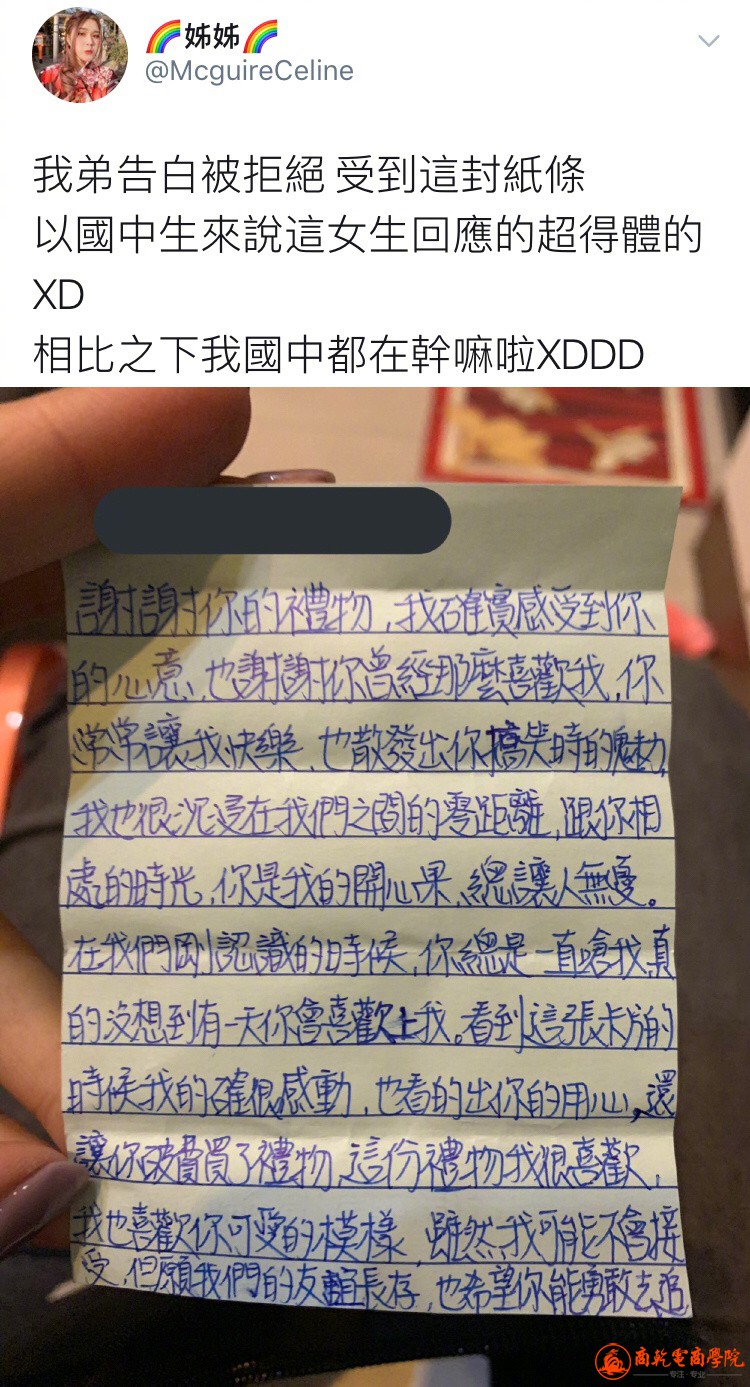 🌈姊姊🌈
@McguireCeline
我弟告白被拒絕 受到這封紙條
以國中生來說這女生回應的超得體的
XD
相比之下我國中都在幹嘛啦XDDD
謝謝你的禮物,我確實感受到你
的心意,也謝謝你曾經那麼喜歡我,你
常常讓我快樂,也散發出你搞笑時的魅力,
我也很沉浸在我們之間的零距離,跟你相
處的時光,你是我的開心果,總讓人無憂。
在我們剛認識的時候,你總是一直嗆我,真
的沒想到有一天你會喜歡上我。看到這張卡片的
時候我的確很感動,也看的出你的用心,還
讓你破費買了禮物,這份禮物我很喜歡,
我也喜歡你可愛的模樣,雖然我可能不會接
受,但願我們的友誼長存,也希望你能勇敢去追
商乾電商學院
專注·專业